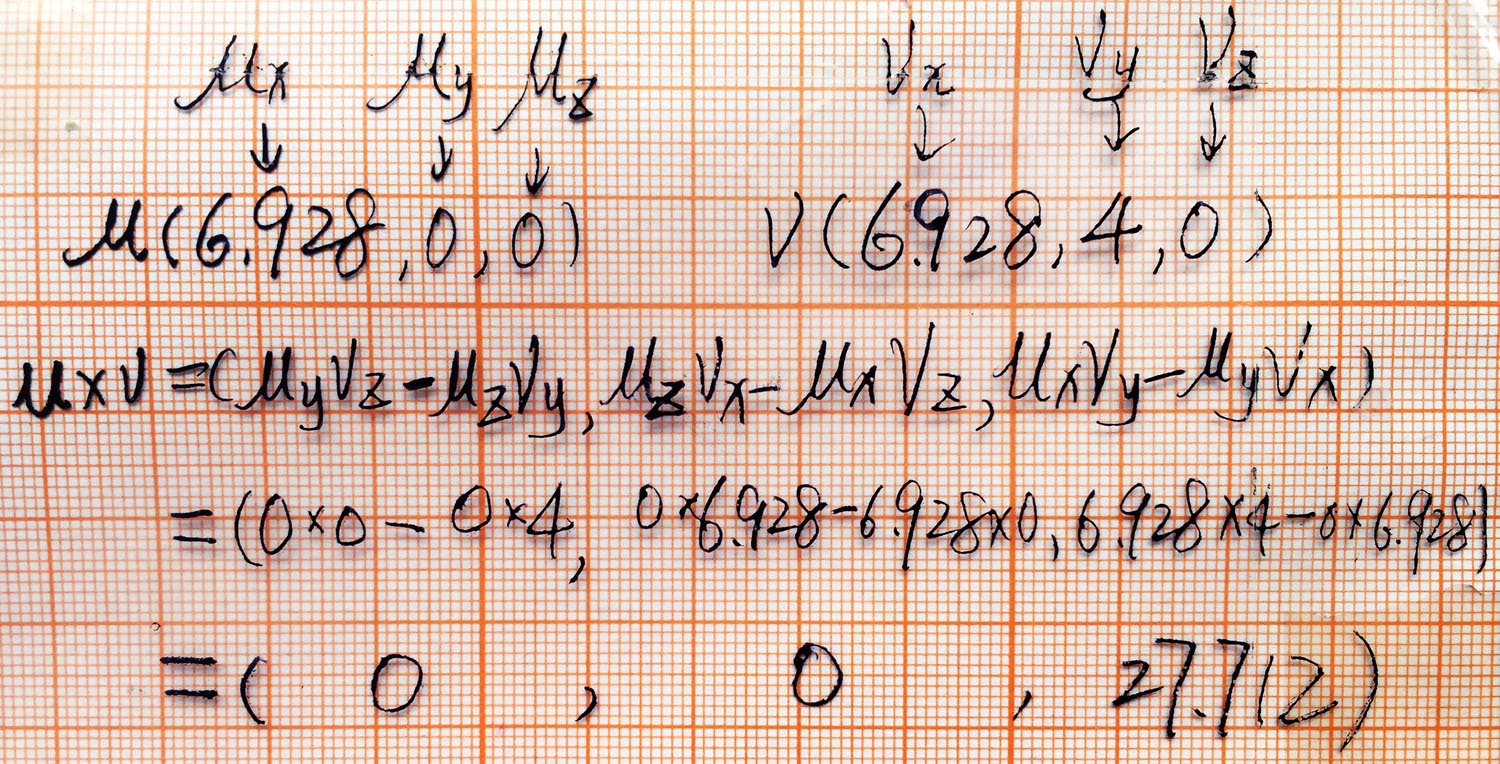 μx μy μz Vx Vy Vz
↓ ↓ ↓ ↓ ↓ ↓
μ(6.928,0,0) V(6.928,4,0)
μxV=(μyVz-μzVy,μzVx-μxVz,μxVy-μyVx)
=(0×0-0×4, 0×6.928-6.928×0, 6.928×4-0×6.928)
=( 0 , 0 , 27.712)